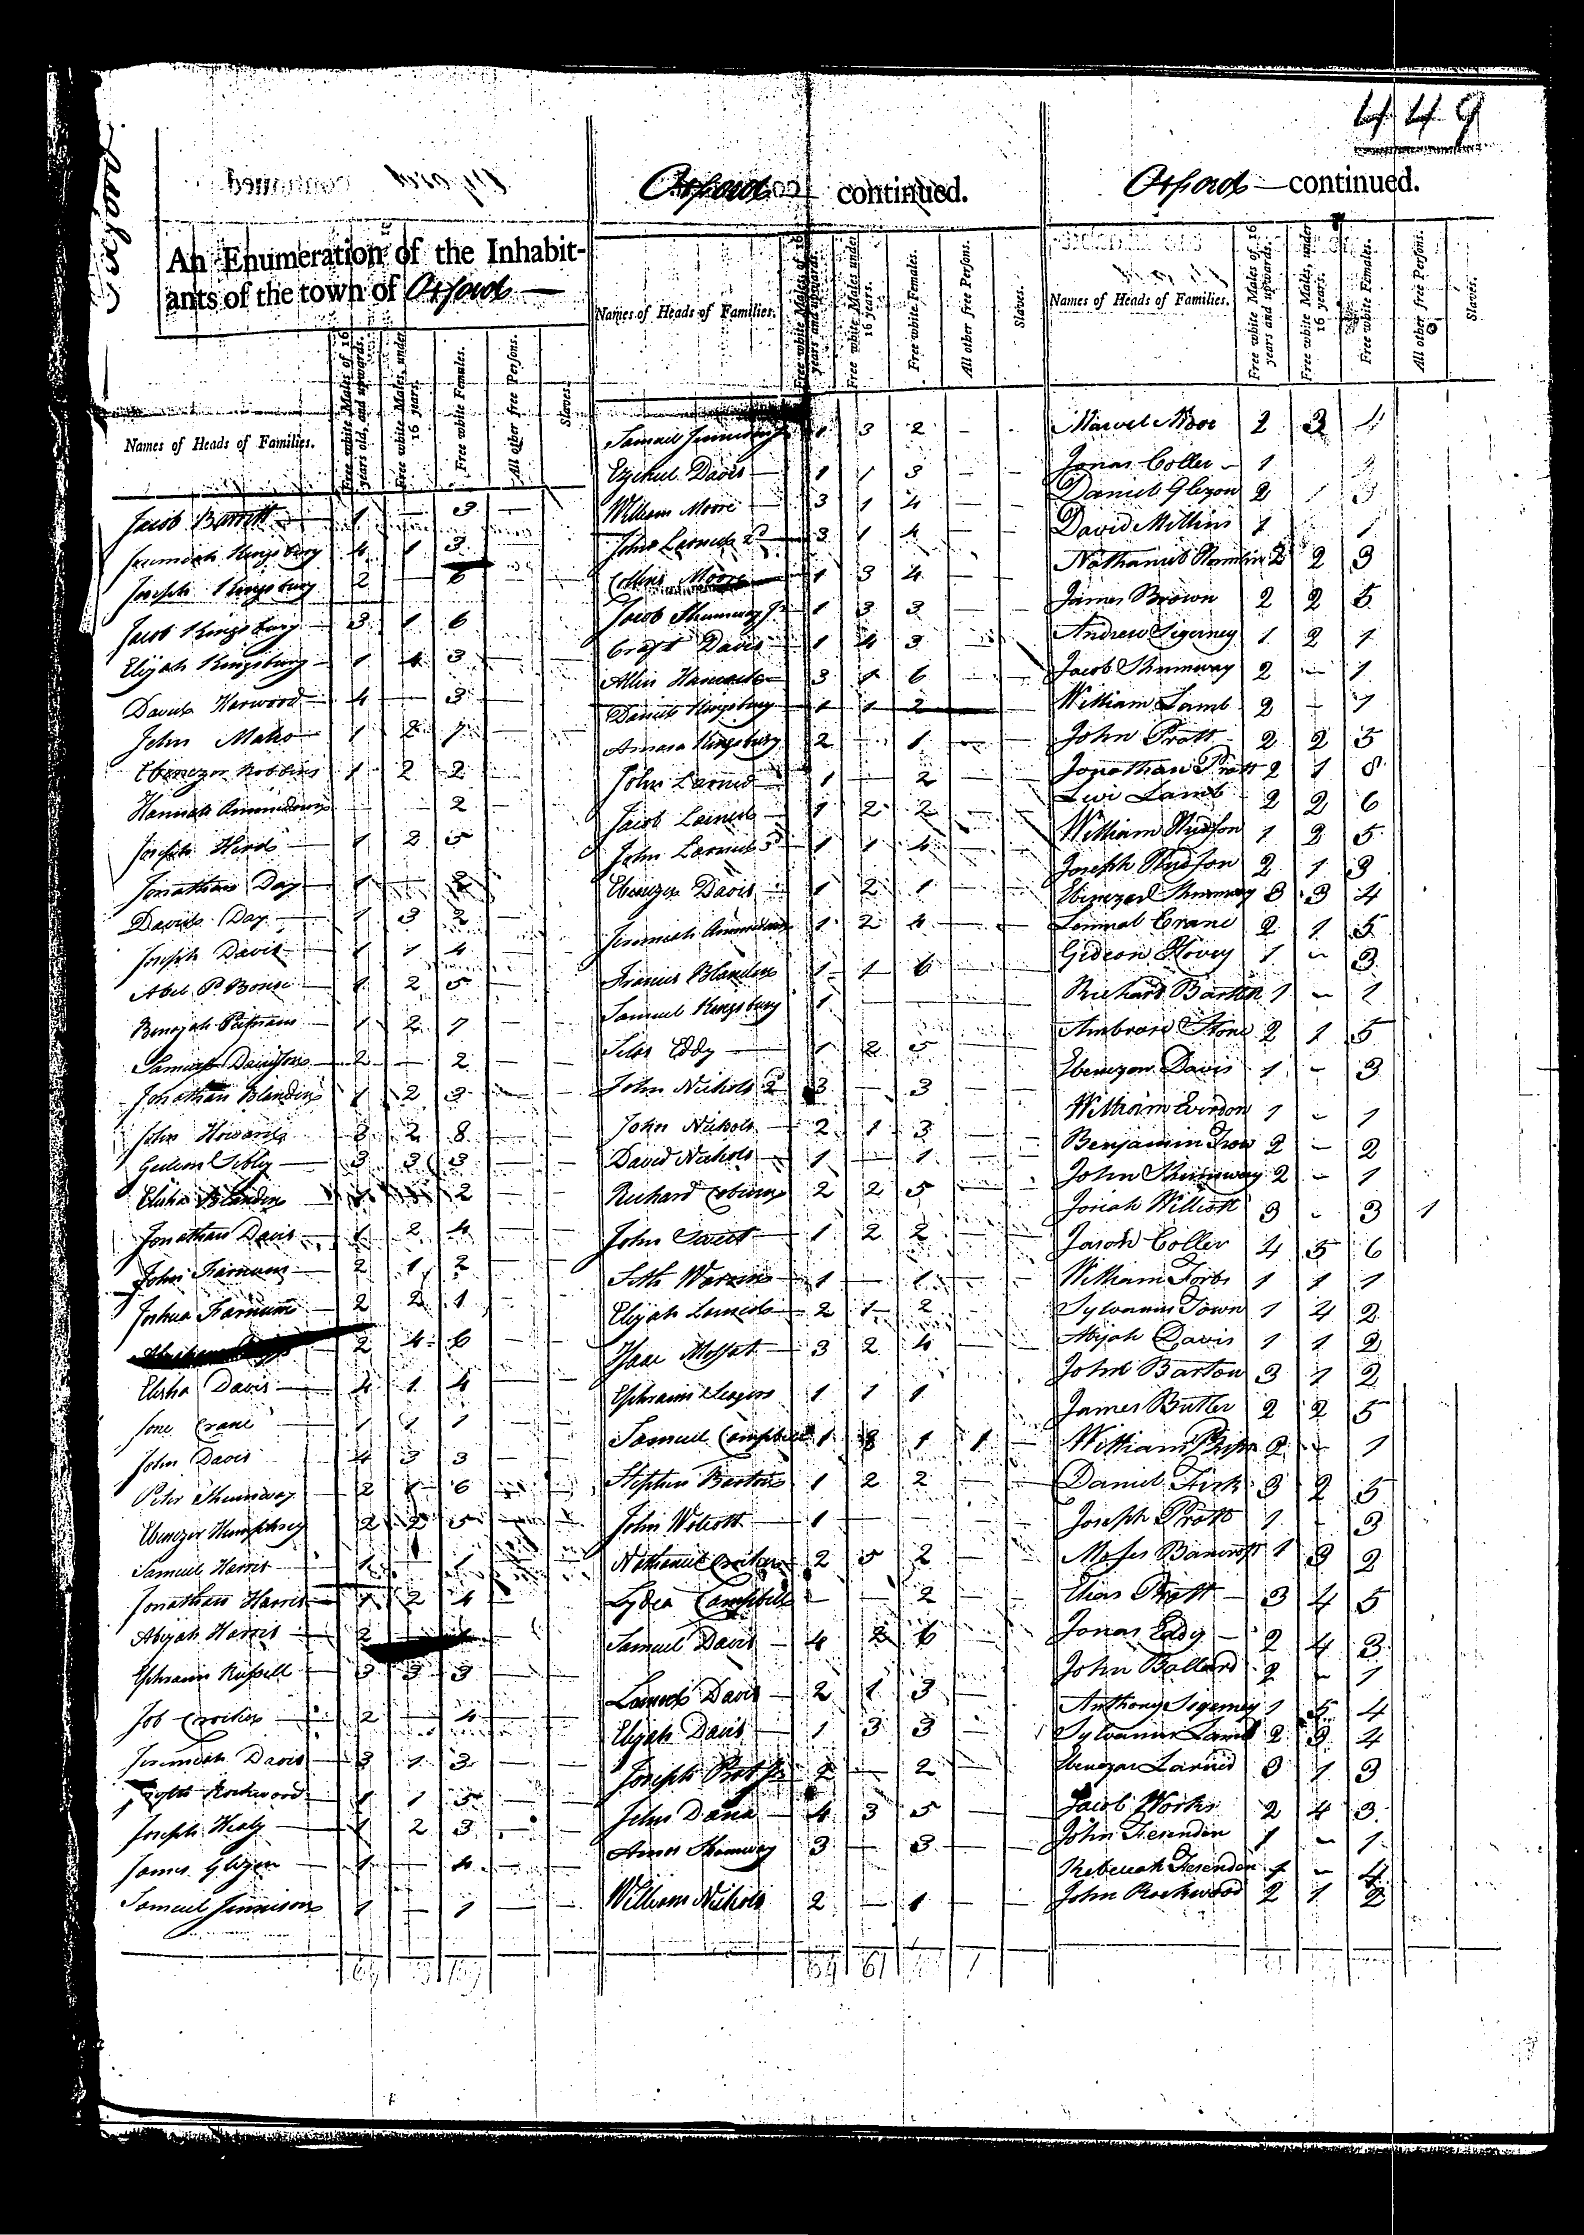 449
Oxford
An Enumeration of the Inhabit-
ants of the town of Oxford —
Names of Heads of Families.
Free white Males of 16 years old, and upwards.
Free white Males, under 16 years.
Free white Females.
All other free Persons.
Slaves.
Jacob Barrett 1 — 3 —
Jeremiah Kingsbury 4 1 3 —
Joseph Kingsbury 2 — 6
Jacob Kingsbury 3 1 6
Elijah Kingsbury 1 4 3 —
David Harwood 4 — 3 —
John Mako 1 2 1 —
Ebenezer Robbins 1 2 2 —
Hannah 2
Joseph Hurd 1 2 5
Jonathan Day 1 — 2
David Day 1 3 2 —
Joseph Davis 1 1 4 —
Abel P. 1 2 5 —
Benajah Putnam 1 2 7 —
Samuel Davison 2 — 2 —
Jonathan Blandin 1 2 3 —
John Howard 3 2 8 —
Gideon Sibley 3 3 3 —
Elisha Blandin 2 —
Jonathan Davis 1 2 4 —
John Farnum 2 1 2 —
Joshua Farnum 2 2 1 —
2 4 6 —
Elisha Davis 4 1 4 —
Crane 1 1 1 —
John Davis 4 3 3 —
Peter Shumway 2 1 6
Ebenezer Humphrey 2 2 5
Samuel Harris 1 — 1
Jonathan Harris 1 2 4 —
Abijah Harris 2
Ephraim Russell 3 3 3 —
Job Crocker 2 — 4 —
Jeremiah Davis 3 1 3 —
Rockwood 1 1 5 —
Joseph Healy 1 2 3 —
James Glezen 1 — 4 —
Samuel Jennison 1 — 1 — —
Oxford continued.
Names of Heads of Families.
Free white Males of 16 years and upwards.
Free white Males under 16 years.
Free white Females.
All other free Persons.
Slaves.
Samuel Jennison Jr 1 3 2 —
Ezekiel Davis 1 1 3 — —
William Moore 3 1 4 — —
John Larned 2d 3 1 4 — —
Collins Moore 1 3 4 — —
Jacob Shumway Jr 1 3 3 — —
Craft Davis 1 4 3 —
Allen Hancock 3 1 6 — —
Daniel Kingsbury 1 1 2
Amasa Kingsbury 2 — 1 — —
John Larned 1 — 2 — —
Jacob Larned 1 2 2 —
John Larned 3d 1 1 4
Ebenezer Davis 1 2 1 —
Jeremiah 1 2 4 —
Francis Blandin 1 1 6 —
Samuel Kingsbury 1 — — —
Silas Eddy 1 2 5 —
John Nichols 2d 3 — 3 —
John Nichols 2 1 3 — —
David Nichols 1 — 1 — —
Richard Coburn 2 2 5 — —
John Sweet 1 2 2 —
Seth Warren 1 — 1 — —
Elijah Larned 2 1 2 —
Isaac Moffat 3 2 4 —
Ephraim 1 1 1
Samuel Campbell 1 3 1 1 —
Stephen Barton 1 2 2 — —
John Wolcott 1 — — — —
Nathaniel Crocker 2 5 2 —
Lydia Campbell — — 2 — —
Samuel Davis 4 2 6 — —
Larned Davis 2 1 3 —
Elijah Davis 1 3 3 —
Joseph Pratt Jr 2 — 2 —
John Dana 4 3 5 —
Amos Shumway 3 — 3 — —
William Nichols 2 — 1 — —
64 61 1
Oxford — continued.
Names of Heads of Families.
Free white Males of 16 years and upwards.
Free white Males, under 16 years.
Free white Females.
All other free Persons.
Slaves.
Marvel Moor 2 3 4
Jonas Coller 1
Daniel Glezon 2 1 3
David Millins 1 1
Nathaniel Hamlin 2 2 3
James Brown 2 2 5
Andrew Sigerney 1 2 1
Jacob Shumway 2 — 1
William Lamb 2 — 1
John Pratt 2 2 5
Jonathan Pratt 2 1 8
Levi Lamb 2 2 6
William Hudson 1 2 5
Joseph Hudson 2 1 3
Ebenezer Shumway 3 3 4
Lemuel Crane 2 1 5
Gideon Hovey 1 — 3
Richard Bartlet 1 — 1
Ambrose Stone 2 1 5
Ebenezer Davis 1 — 3
William Everdon 1 — 1
Benjamin Trow 2 — 2
John Shumway 2 — 1
Josiah Willcott 3 — 3 1
Jason Coller 4 5 6
William Forbs 1 1 1
Sylvanus Town 1 4 2
Abijah Davis 1 1 2
John Barton 3 1 2
James Butler 2 2 5
William 2 — 1
Daniel Fisk 3 2 5
Joseph Pratt 1 — 3
Moses Bancroft 1 3 2
Elias Pratt 3 4 5
Jonas Eddy 2 4 3
John Ballard 2 — 1
Anthony Sigerney 1 5 4
Sylvanus Lamb 2 3 4
Ebenezer Larned 3 1 3
Jacob Works 2 4 3
John Fesenden 1 — 1
Rebeccah Fesenden 1 — 4
John Rockwood 2 1 2